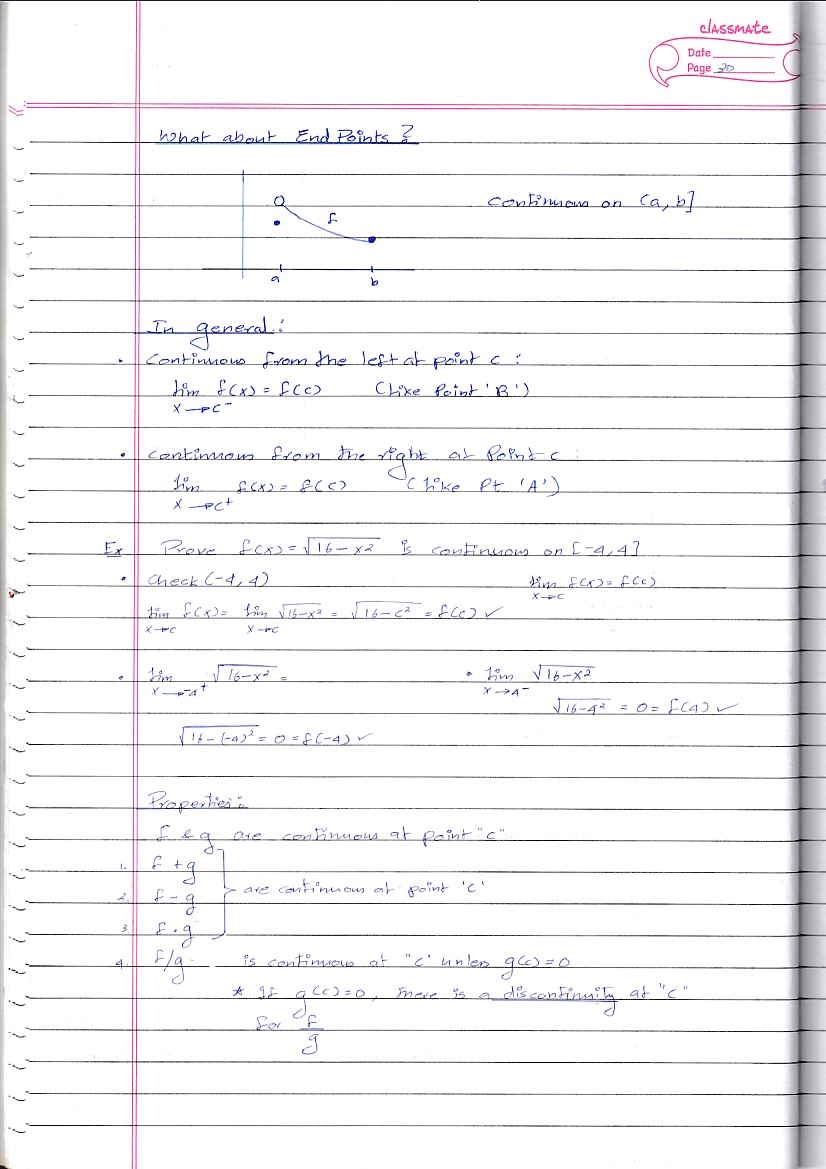 classmate
Date
Page 20
What about End Points?
f
Continuous on (a, b]
a b
In general:
• Continuous from the left at point c :
lim f(x) = f(c) (Like Point 'B')
x→c⁻
• Continuous from the right at Point c :
lim f(x) = f(c) (Like Pt 'A')
x→c⁺
Ex Prove f(x) = √16-x² is continuous on [-4, 4]
• Check (-4, 4) lim f(x) = f(c)
x→c
lim f(x) = lim √16-x² = √16-c² = f(c) ✓
x→c x→c
• lim √16-x² = • lim √16-x²
x→-4⁺ x→4⁻
√16-4² = 0 = f(4) ✓
√16-(-4)² = 0 = f(-4) ✓
Properties:
f & g are continuous at point "c"
1. f + g
are continuous at point 'c'
2. f - g
3. f · g
4. f/g is continuous at "c' unless g(c) = 0
* If g(c) = 0, there is a discontinuity at "c"
for f
g